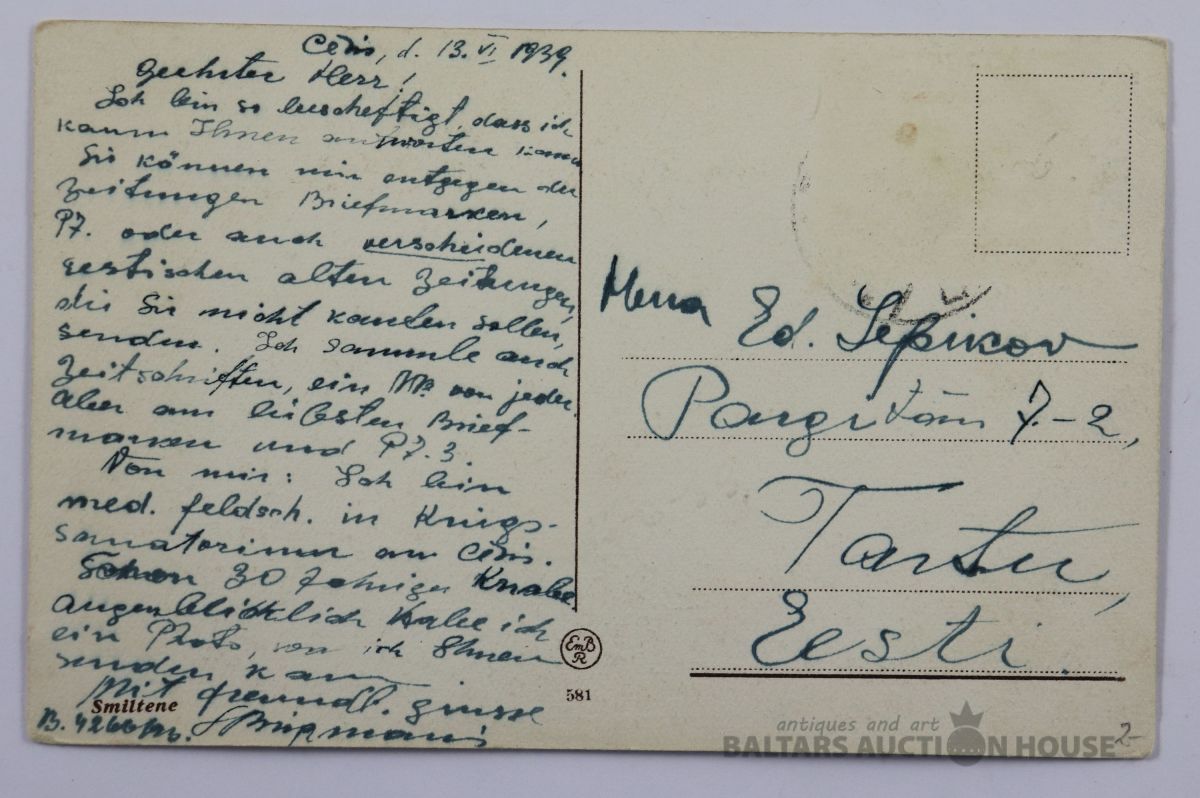 Cēsis, d. 13. VI 1939.
Geehrter Herr!
Ich bin so bescheftigt, dass ich
kaum Ihnen antworten kann
Sie können mir entgegen der
Zeitungen Briefmarken,
P7. oder auch verschiedenen
eestischen alten Zeitungen,
die Sie nicht kaufen sollen,
senden. Ich sammle auch
Zeitschriften, ein NR. von jeder.
Aber am liebsten Brief-
marken und P7.3.
Von mir: Ich bin
med. feldsch. in Kriegs-
sanatorium an Cēsis.
Schon 30 Jahriger Knabe
augenblicklich habe ich
ein Photo, von ich Ihnen
senden kann
Mit freundl. grüsse
Birģmanis
Smiltene
EmB
R
581
Herra
Ed. Sepikov
Pargi tän. 7.-2,
Tartu,
Eesti.
antiques and art
BALTARS AUCTION HOUSE
2-